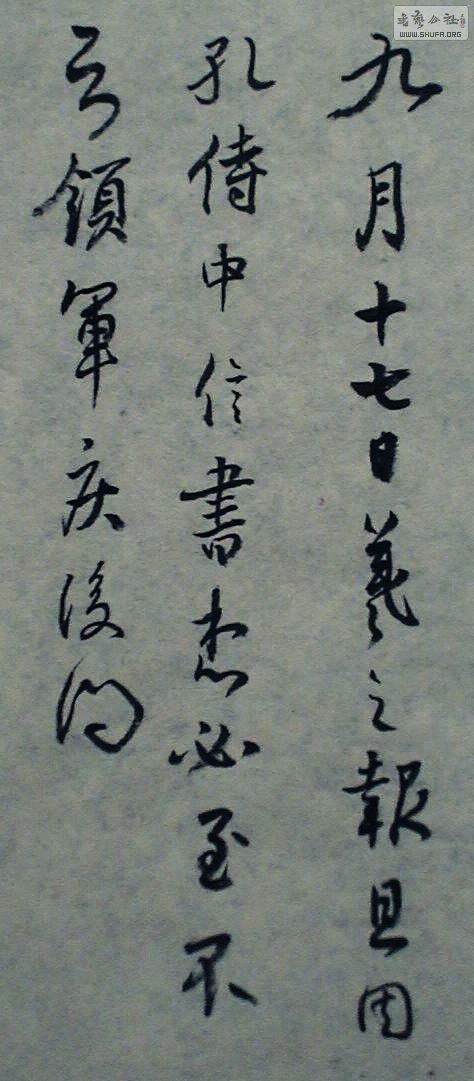 九月十七日羲之報且因
孔侍中信書想必至不
知領軍疾後問
书艺公社
WWW.SHUFA.ORG